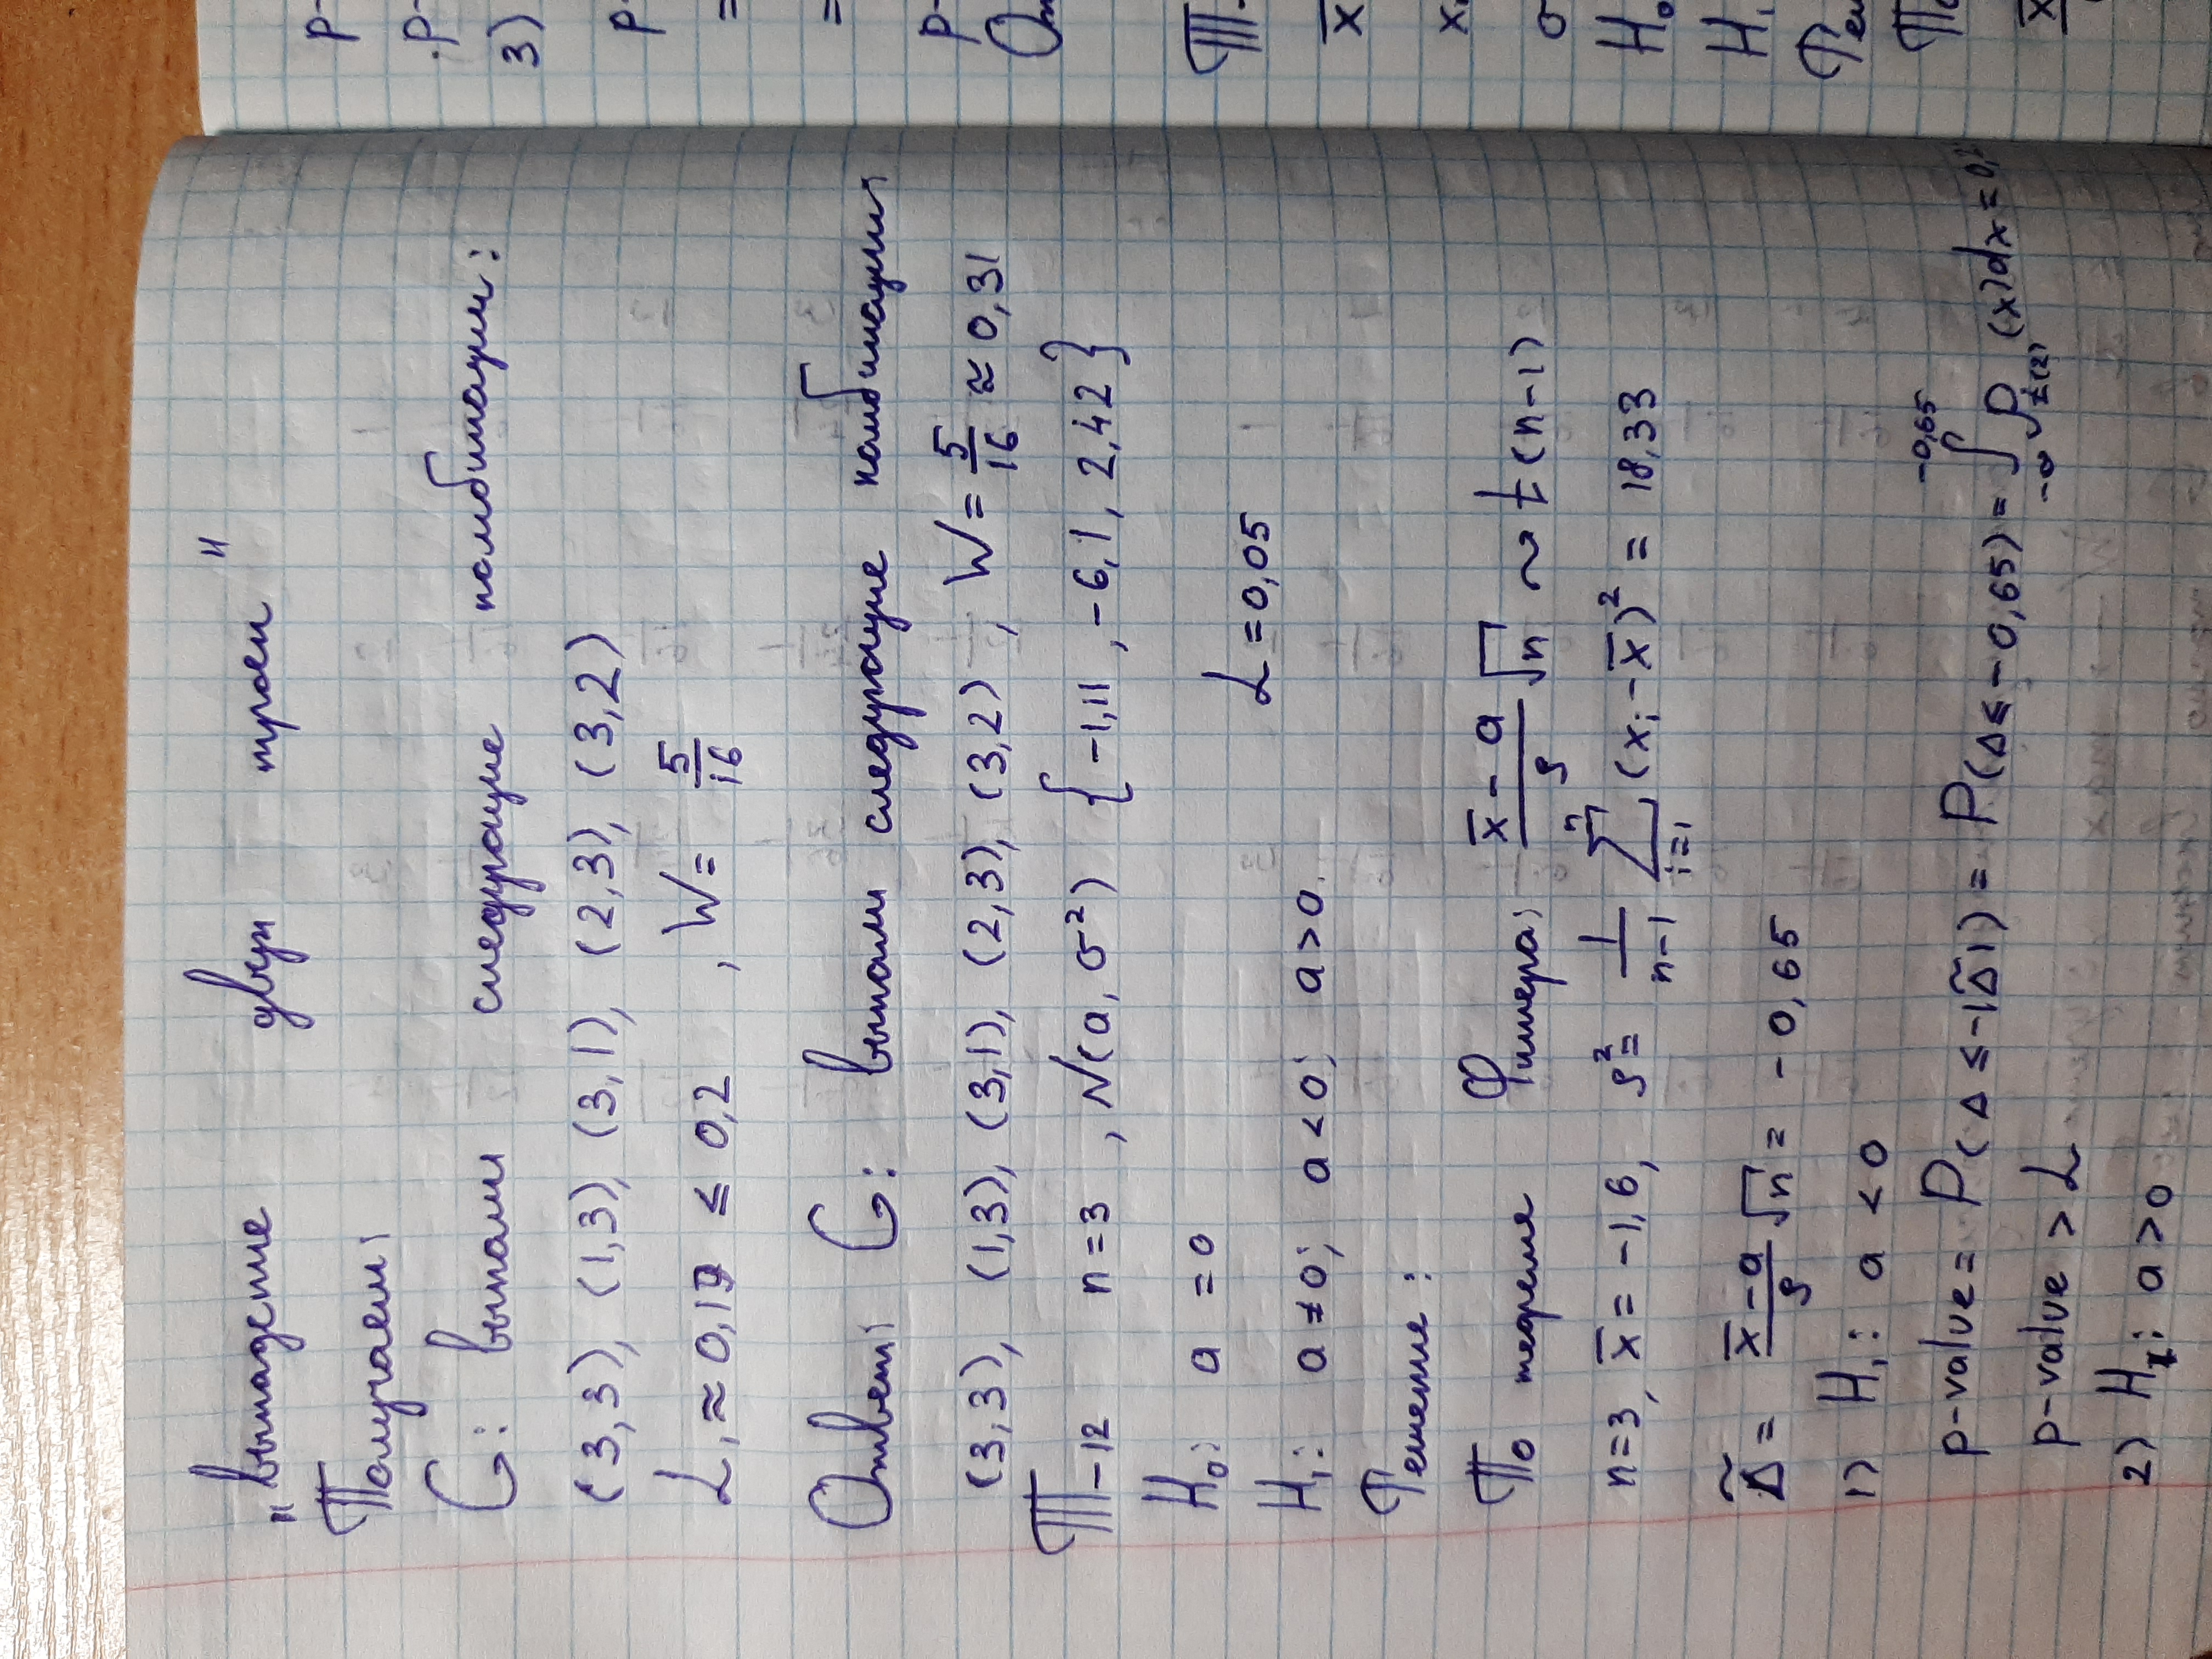 „выпадение двух троек"
Получаем:
G: выпали следующие комбинации:
(3,3), (1,3), (3,1), (2,3), (3,2)
L₁ ≈ 0,19 ≤ 0,2 , W = 5/16
Ответ: G: выпали следующие комбинации:
(3,3), (1,3), (3,1), (2,3), (3,2) , W = 5/16 ≈ 0,31
T-12 n=3 , N(a, σ²) {-1,11 , -6,1, 2,42}
H₀: a = 0
L = 0,05
H₁: a ≠ 0; a < 0; a > 0.
Решение:
По теореме Фишера: (x̅ - a)/s √n ~ t(n-1)
n=3, x̅ = -1,6, s² = 1/(n-1) ∑ⁿᵢ₌₁ (xᵢ - x̅)² = 18,33
Δ̃ = (x̅ - a)/s √n = -0,65
1) H₁: a < 0
p-value = P(Δ ≤ -|Δ̃|) = P(Δ ≤ -0,65) = ∫ -∞ -0,65 p t(2) (x)dx = 0,2
p-value > L
2) H₁: a > 0
p-
p-
3)
p-
=
=
p-
От
T-
x̅
σ
H₀
H₁
Реш
По
x̅